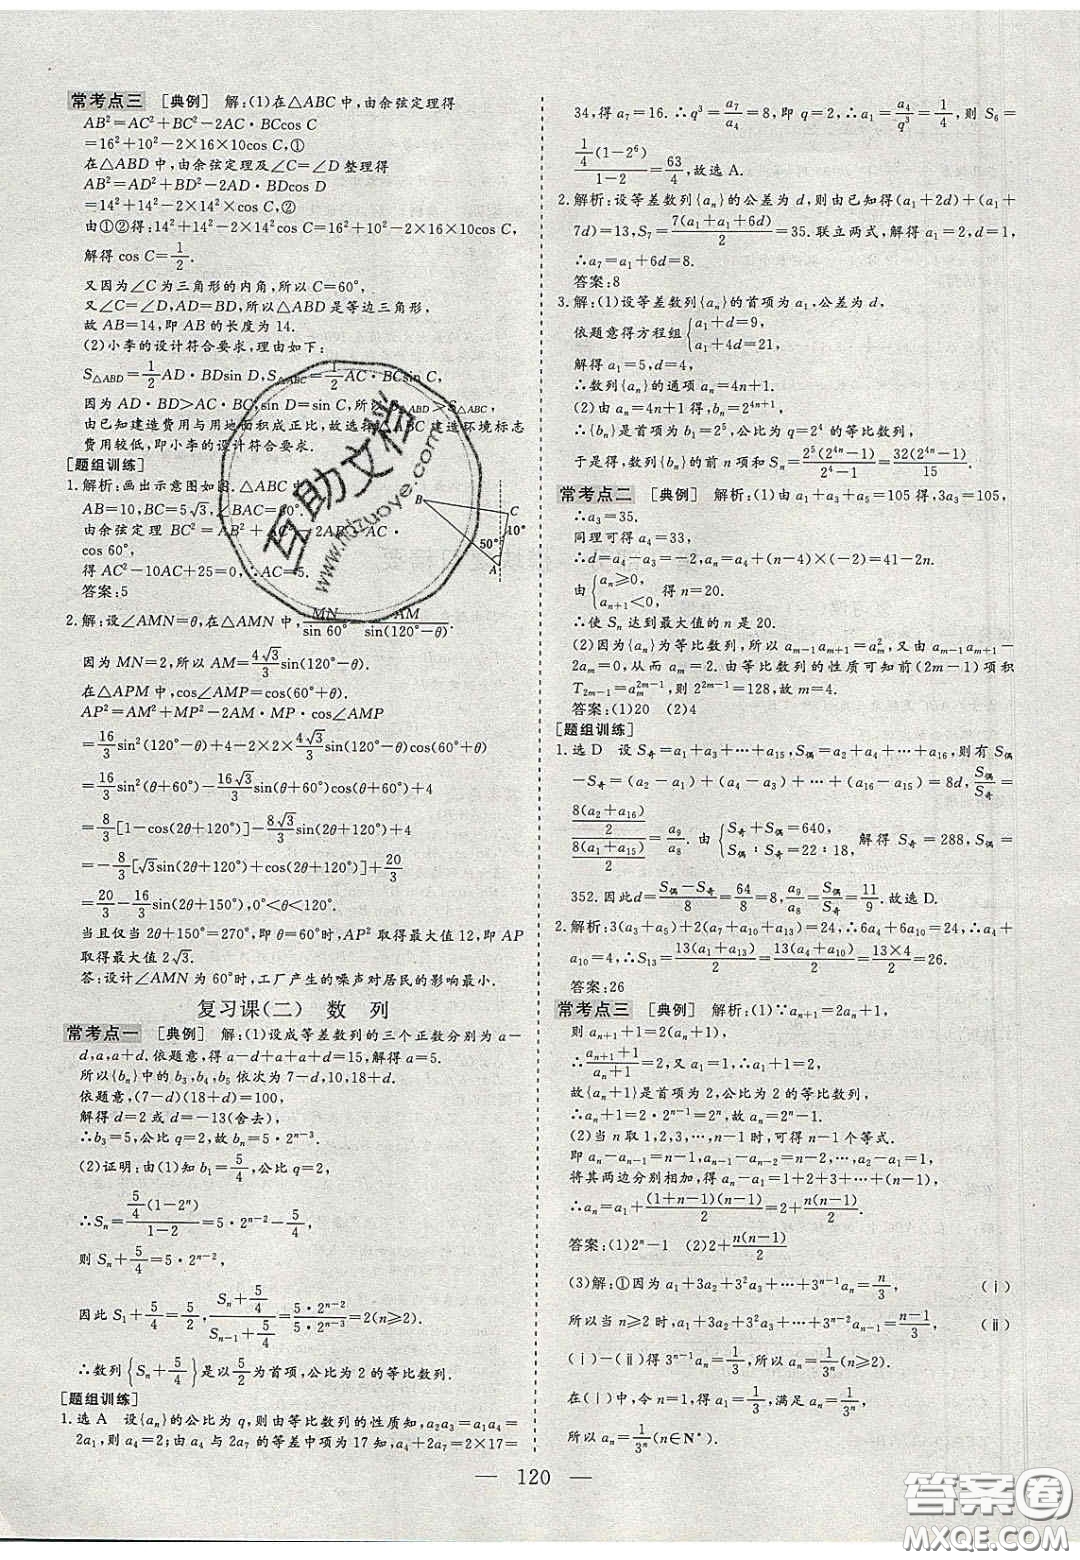 常考点三 [典例] 解:(1)在△ABC中,由余弦定理得
AB²=AC²+BC²-2AC·BCcos C
=16²+10²-2×16×10cos C,①
在△ABD中,由余弦定理及∠C=∠D整理得
AB²=AD²+BD²-2AD·BDcos D
=14²+14²-2×14²cos C,②
由①②得:14²+14²-2×14²cos C=16²+10²-2×16×10cos C,
解得cos C=1/2.
又因为∠C为三角形的内角,所以∠C=60°,
又∠C=∠D,AD=BD,所以△ABD是等边三角形,
故AB=14,即AB的长度为14.
(2)小李的设计符合要求,理由如下:
S△ABD=1/2AD·BDsin D,S△ABC=1/2AC·BCsin C,
因为AD·BD>AC·BC,sin D=sin C,所以S△ABD>S△ABC,
由已知建造费用与用地面积成正比,故选择△ABC建造环境标志
费用较低,即小李的设计符合要求.
[题组训练]
1.解析:画出示意图如图.△ABC中,
AB=10,BC=5√3,∠BAC=60°.
由余弦定理BC²=AB²+AC²-2AB·AC·
cos 60°,
得AC²-10AC+25=0,∴AC=5.
答案:5
B
C
10°
50°
A
2.解:设∠AMN=θ,在△AMN中,MN/sin 60°=AM/sin(120°-θ).
因为MN=2,所以AM=4√3/3sin(120°-θ).
在△APM中,cos∠AMP=cos(60°+θ).
AP²=AM²+MP²-2AM·MP·cos∠AMP
=16/3sin²(120°-θ)+4-2×2×4√3/3sin(120°-θ)cos(60°+θ)
=16/3sin²(θ+60°)-16√3/3sin(θ+60°)cos(θ+60°)+4
=8/3[1-cos(2θ+120°)]-8√3/3sin(2θ+120°)+4
=-8/3[√3sin(2θ+120°)+cos(2θ+120°)]+20/3
=20/3-16/3sin(2θ+150°),0°<θ<120°.
当且仅当2θ+150°=270°,即θ=60°时,AP²取得最大值12,即AP
取得最大值2√3.
答:设计∠AMN为60°时,工厂产生的噪声对居民的影响最小.
复习课(二) 数 列
常考点一 [典例] 解:(1)设成等差数列的三个正数分别为a-
d,a,a+d.依题意,得a-d+a+a+d=15,解得a=5.
所以{bₙ}中的b₃,b₄,b₅依次为7-d,10,18+d.
依题意,(7-d)(18+d)=100,
解得d=2或d=-13(舍去),
∴b₃=5,公比q=2,故bₙ=5·2ⁿ⁻³.
(2)证明:由(1)知b₁=5/4,公比q=2,
∴Sₙ=5/4(1-2ⁿ)/(1-2)=5·2ⁿ⁻²-5/4,
则Sₙ+5/4=5·2ⁿ⁻²,
因此S₁+5/4=5/2,(Sₙ+5/4)/(Sₙ₋₁+5/4)=5·2ⁿ⁻²/5·2ⁿ⁻³=2(n≥2).
∴数列{Sₙ+5/4}是以5/2为首项,公比为2的等比数列.
[题组训练]
1.选A 设{aₙ}的公比为q,则由等比数列的性质知,a₂a₃=a₁a₄=
2a₁,则a₄=2;由a₄与2a₇的等差中项为17知,a₄+2a₇=2×17=
34,得a₇=16.∴q³=a₇/a₄=8,即q=2,a₁=a₄/q³=1/4,则S₆=
1/4(1-2⁶)/(1-2)=63/4,故选A.
2.解析:设等差数列{aₙ}的公差为d,则由已知得(a₁+2d)+(a₁+
7d)=13,S₇=7(a₁+a₁+6d)/2=35.联立两式,解得a₁=2,d=1,
∴a₇=a₁+6d=8.
答案:8
3.解:(1)设等差数列{aₙ}的首项为a₁,公差为d,
依题意得方程组{a₁+d=9, a₁+4d=21,
解得a₁=5,d=4,
∴数列{aₙ}的通项aₙ=4n+1.
(2)由aₙ=4n+1得,bₙ=2⁴ⁿ⁺¹,
∴{bₙ}是首项为2⁵,公比为q=2⁴的等比数列,
于是得,数列{bₙ}的前n项和Sₙ=2⁵(2⁴ⁿ-1)/(2⁴-1)=32(2⁴ⁿ-1)/15.
常考点二 [典例] 解析:(1)由a₁+a₃+a₅=105得,3a₃=105,
∴a₃=35.
同理可得a₄=33,
∴d=a₄-a₃=-2,aₙ=a₄+(n-4)×(-2)=41-2n.
由{aₙ≥0, aₙ₊₁<0,得n=20.
∴使Sₙ达到最大值的n是20.
(2)因为{aₙ}为等比数列,所以aₘ₋₁aₘ₊₁=aₘ²,又由aₘ₋₁aₘ₊₁-
2aₘ=0,从而aₘ=2.由等比数列的性质可知前(2m-1)项积
T₂ₘ₋₁=aₘ²ᵐ⁻¹,则2²ᵐ⁻¹=128,故m=4.
答案:(1)20 (2)4
[题组训练]
1.选D 设S奇=a₁+a₃+…+a₁₅,S偶=a₂+a₄+…+a₁₆,则有S偶
-S奇=(a₂-a₁)+(a₄-a₃)+…+(a₁₆-a₁₅)=8d,S偶/S奇=
[8(a₂+a₁₆)/2]/[8(a₁+a₁₅)/2]=a₉/a₈.由{S奇+S偶=640, S偶:S奇=22:18,解得S奇=288,S偶=
352.因此d=(S偶-S奇)/8=64/8=8,a₉/a₈=S偶/S奇=11/9.故选D.
2.解析:3(a₃+a₅)+2(a₇+a₁₀+a₁₃)=24,∴6a₄+6a₁₀=24,∴a₄+
a₁₀=4,∴S₁₃=13(a₁+a₁₃)/2=13(a₄+a₁₀)/2=13×4/2=26.
答案:26
常考点三 [典例] 解析:(1)∵aₙ₊₁=2aₙ+1,
则aₙ₊₁+1=2(aₙ+1).
∴(aₙ₊₁+1)/(aₙ+1)=2,又a₁=1,∴a₁+1=2,
故{aₙ+1}是首项为2,公比为2的等比数列,
∴aₙ+1=2·2ⁿ⁻¹=2ⁿ,故aₙ=2ⁿ-1.
(2)当n取1,2,3,…,n-1时,可得n-1个等式.
即aₙ-aₙ₋₁=n-1,aₙ₋₁-aₙ₋₂=n-2,…,a₂-a₁=1,
将其两边分别相加,得aₙ-a₁=1+2+3+…+(n-1),
∴aₙ=a₁+(1+n-1)(n-1)/2=2+n(n-1)/2.
答案:(1)2ⁿ-1 (2)2+n(n-1)/2
(3)解:①因为a₁+3a₂+3²a₃+…+3ⁿ⁻¹aₙ=n/3, (ⅰ)
所以当n≥2时,a₁+3a₂+3²a₃+…+3ⁿ⁻²aₙ₋₁=(n-1)/3, (ⅱ)
(ⅰ)-(ⅱ)得3ⁿ⁻¹aₙ=1/3,所以aₙ=1/3ⁿ(n≥2).
在(ⅰ)中,令n=1,得a₁=1/3,满足aₙ=1/3ⁿ,
所以aₙ=1/3ⁿ(n∈N*).
— 120 —
互助文档
www.hdzuoye.com
答案圈
MXQE.COM